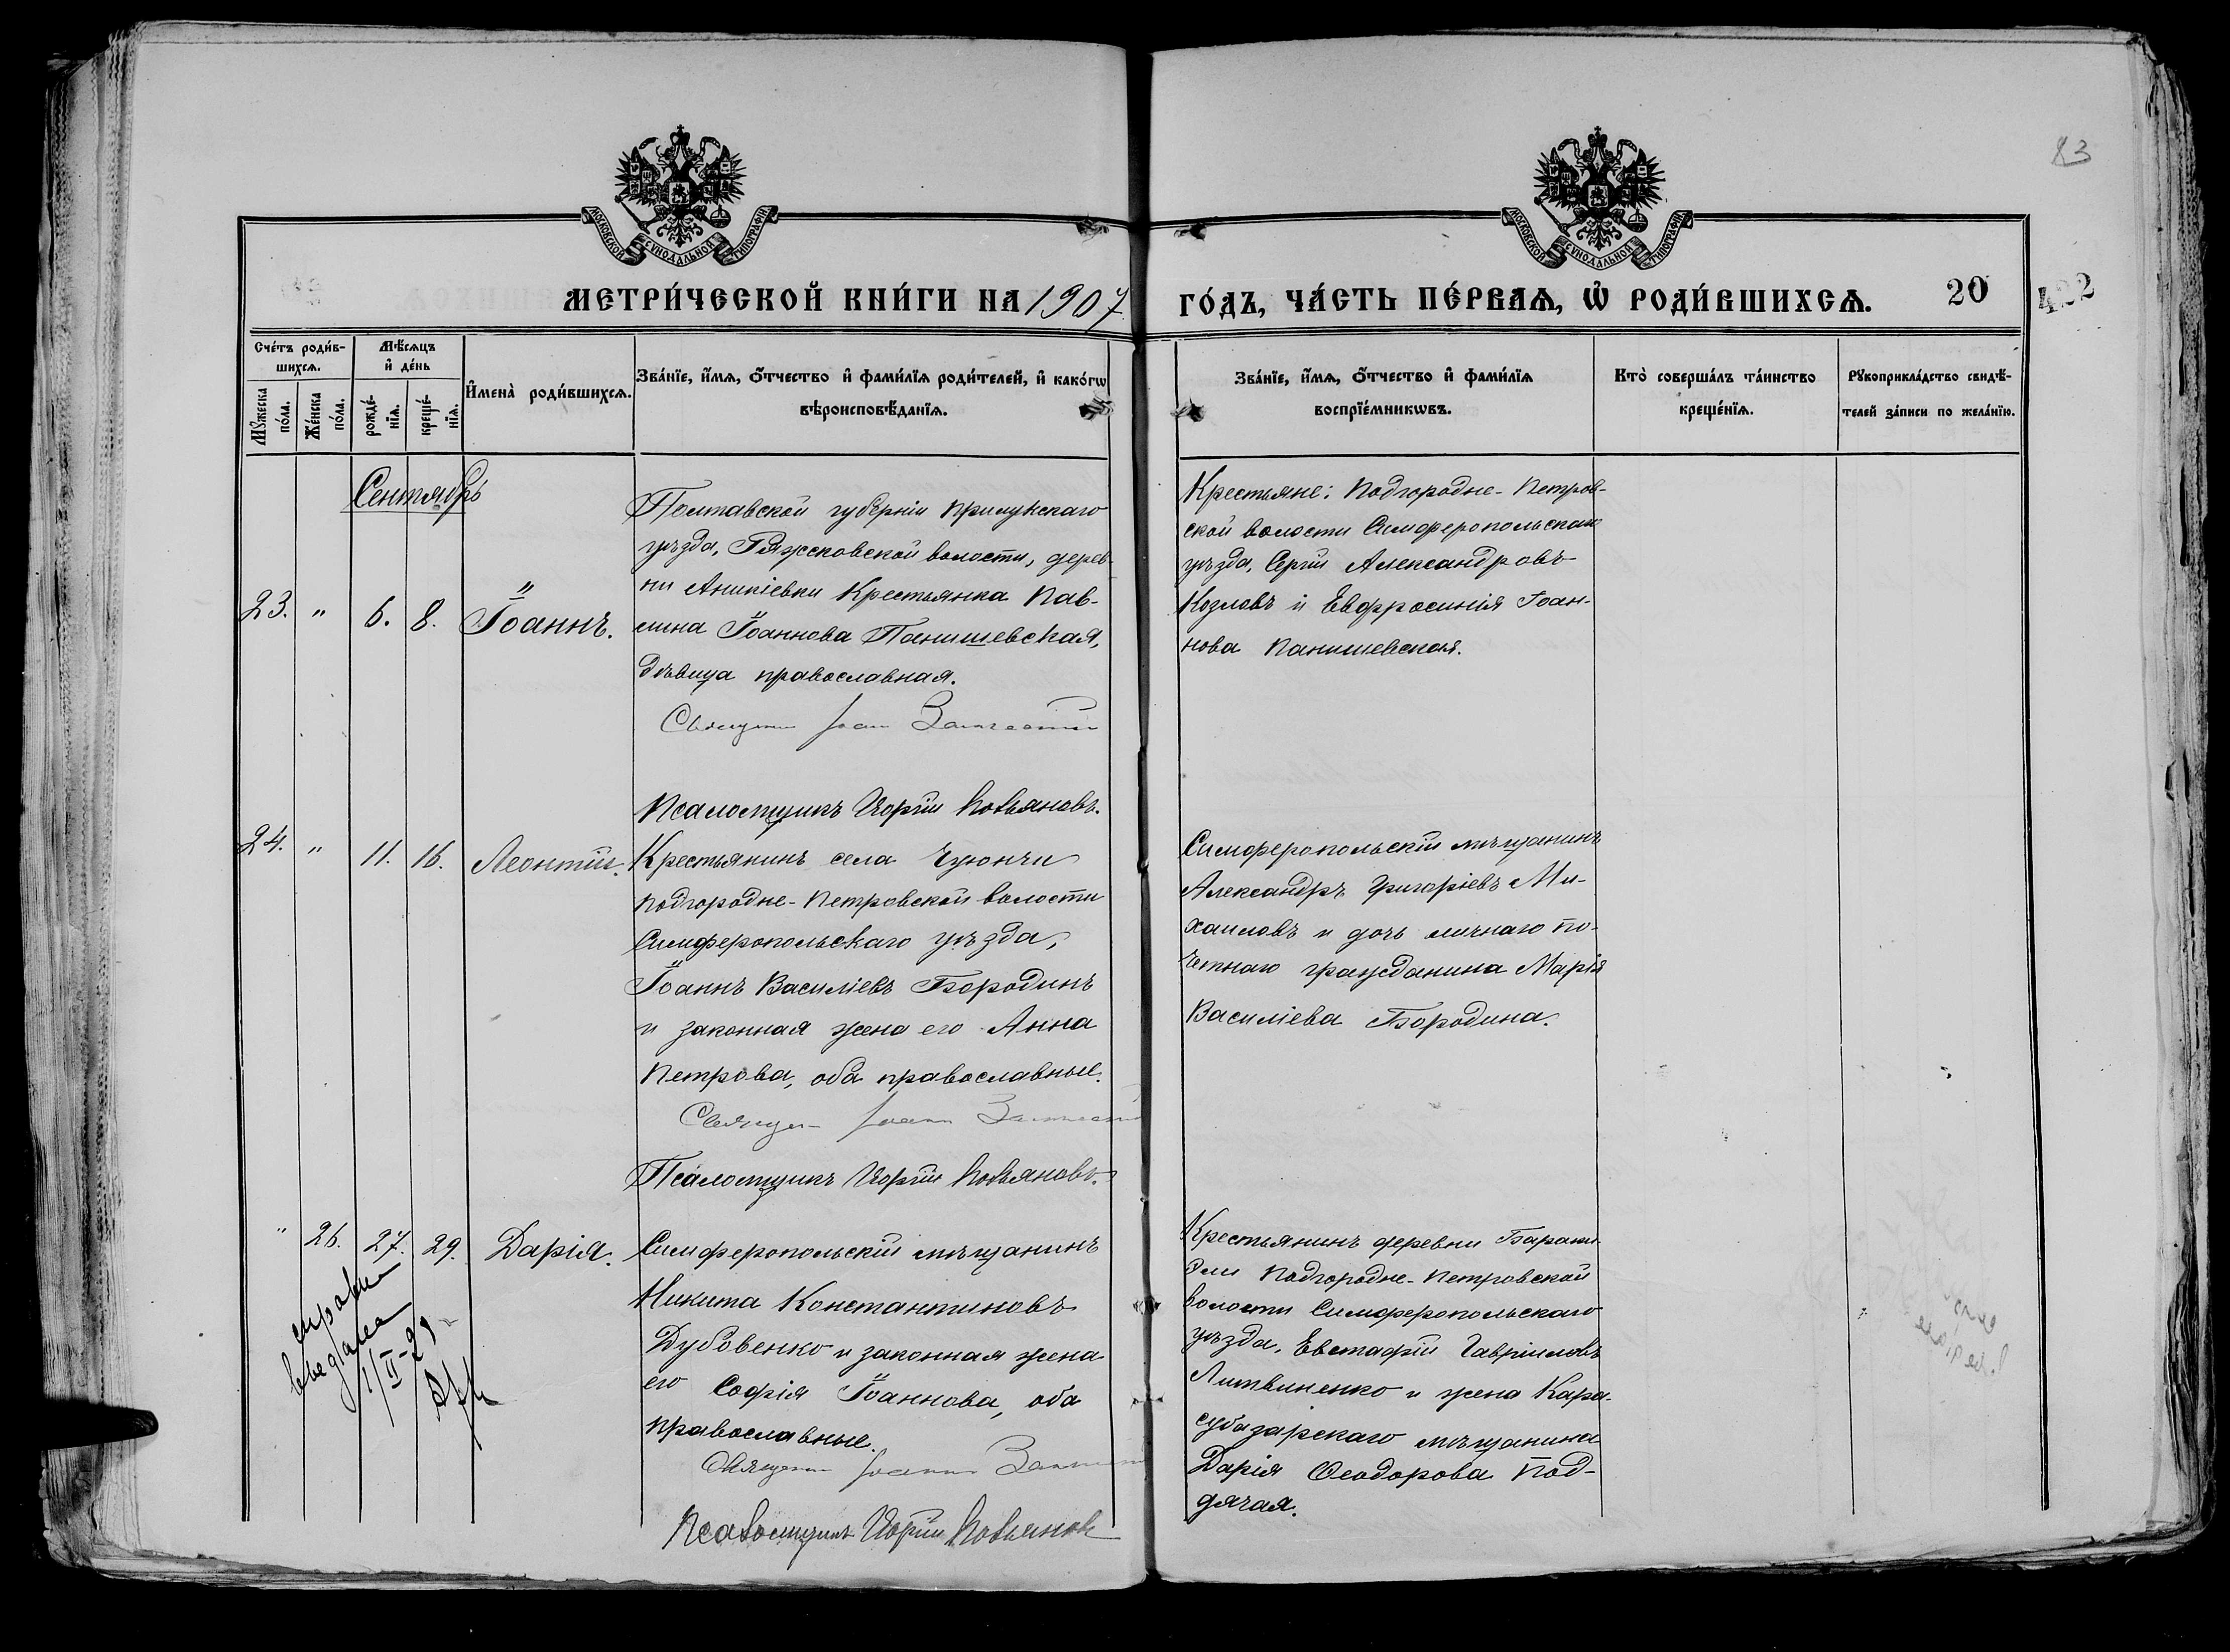 83
МОСКОВСКОЙ СУНОДАЛЬНОЙ ТИПОГРАФІИ
МОСКОВСКОЙ СУНОДАЛЬНОЙ ТИПОГРАФІИ
МЕТРИ́ЧЕСКОЙ КНИ́ГИ НА 1907 ГО́ДЪ, ЧА́СТЬ ПЕ́РВАѦ, Ѡ҆ РОДИ́ВШИХСѦ. 20
422
Сче́тъ роди́в-
шихсѧ.
Мѣ́сѧцъ
и҆ де́нь
Мꙋ́жеска
по́ла.
Же́нска
по́ла.
рожде́-
нїѧ.
креще́-
нїѧ.
И҆мена̀ роди́вшихсѧ.
Зва́нїе, и҆́мѧ, ѻ҆́тчество и҆ фами́лїѧ роди́телей, и҆ како́гѡ
вѣроисповѣ́данїѧ.
Зва́нїе, и҆́мѧ, ѻ҆́тчество и҆ фами́лїѧ
воспрїе́мникѡвъ.
Кто̀ соверша́лъ та́инство
креще́нїѧ.
Рꙋкоприкла́дство свидѣ́-
телей за́писи по жела́нїю.
Сентябрь
23. " 6. 8. Іоаннъ.
Полтавской губерніи Прилукскаго
уѣзда, Ряжсковской волости, дерев-
ни Аникіевки Крестьянка Пав-
лина Іоаннова Панишевская,
дѣвица православная.
Священн Іоан
Псаломщикъ
Крестьяне: Подгородне-Петров-
ской волости Симферопольскаго
уѣзда, Сергій Александровъ
Козловъ и Евфросинія Іоан-
нова Панишевская.
24. " 11. 16. Леонтій.
Крестьянинъ села Чуюнчи
Подгородне-Петровской волости
Симферопольскаго уѣзда,
Іоаннъ Василіевъ Бородинъ
и законная жена его Анна
Петрова, оба православные.
Священ Іоанн
Псаломщикъ
Симферопольскій мѣщанинъ
Александръ Григоріевъ Ми-
хаиловъ и дочь личнаго по-
четнаго гражданина Марія
Василіева Бородина.
" 26. 27. 29. Дарія.
Симферопольскій мѣщанинъ
Никита Константиновъ
Дубовенко и законная жена
его Софія Іоаннова, оба
православные.
Священн Іоанн
Псаломщикъ
Крестьянинъ деревни
Подгородне-Петровской
волости Симферопольскаго
уѣзда, Евстафій Гавріиловъ
Литвиненко и жена Кара-
субазарскаго мѣщанина
Дарія Ѳеодорова Под-
дячая.
справка
выдана
1/II-29